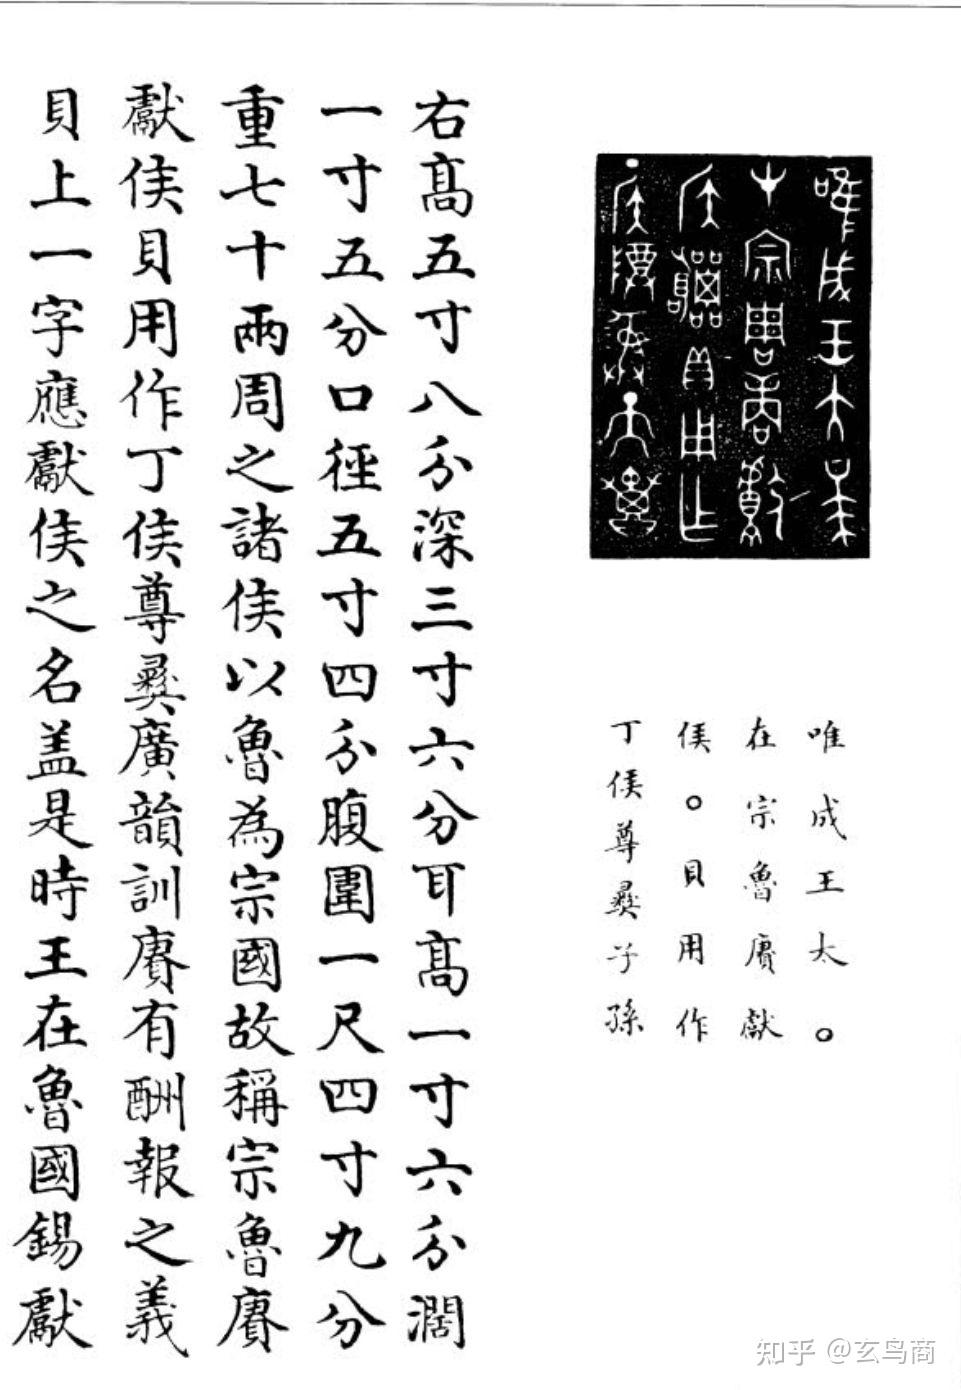 唯成王太○
在宗魯賡獻
侯○貝用作
丁侯尊彝子孫
右髙五寸八分深三寸六分耳髙一寸六分濶
一寸五分口徑五寸四分腹圍一尺四寸九分
重七十兩周之諸侯以魯為宗國故稱宗魯賡
獻侯貝用作丁侯尊彝廣韻訓賡有酬報之義
貝上一字應獻侯之名盖是時王在魯國錫獻
知乎 @玄鸟商